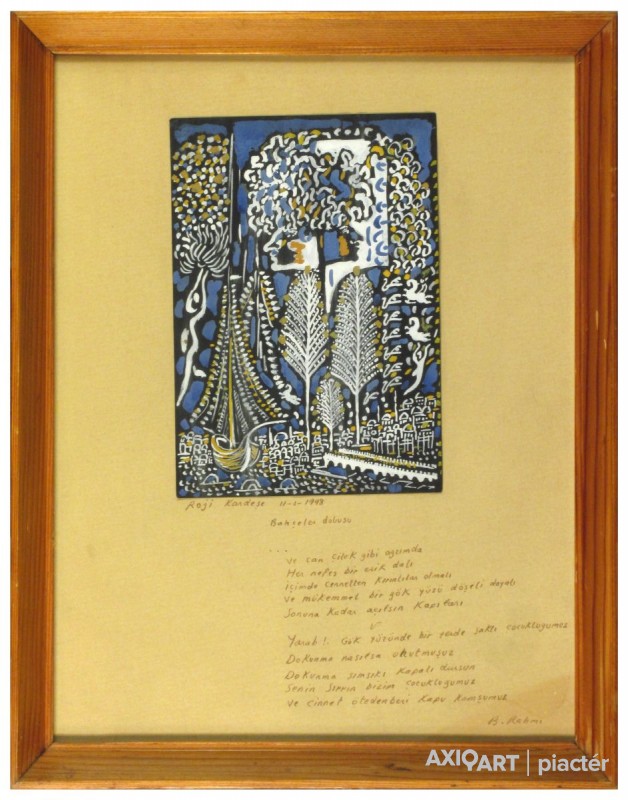 Raji Kardeşe 11-2-1948
Bahçeler dolusu
...
ve can çilek gibi ağzımda
Her nefes bir erik dalı
içinde cennetten olmalı
ve mükemmel bir gök yüzü döşeli dayalı
Sonuna kadar açılsın kapıları
Yarab!. Gök yüzünde bir yerde saklı çocukluğumuz
Dokunma nasılsa unutmuşuz
Dokunma sımsıkı kapalı dursun
Senin Sırrın bizim çocukluğumuz
ve cinnet ötedenberi Kapu Komşumuz
B. Rahmi
AXIOART | piactér